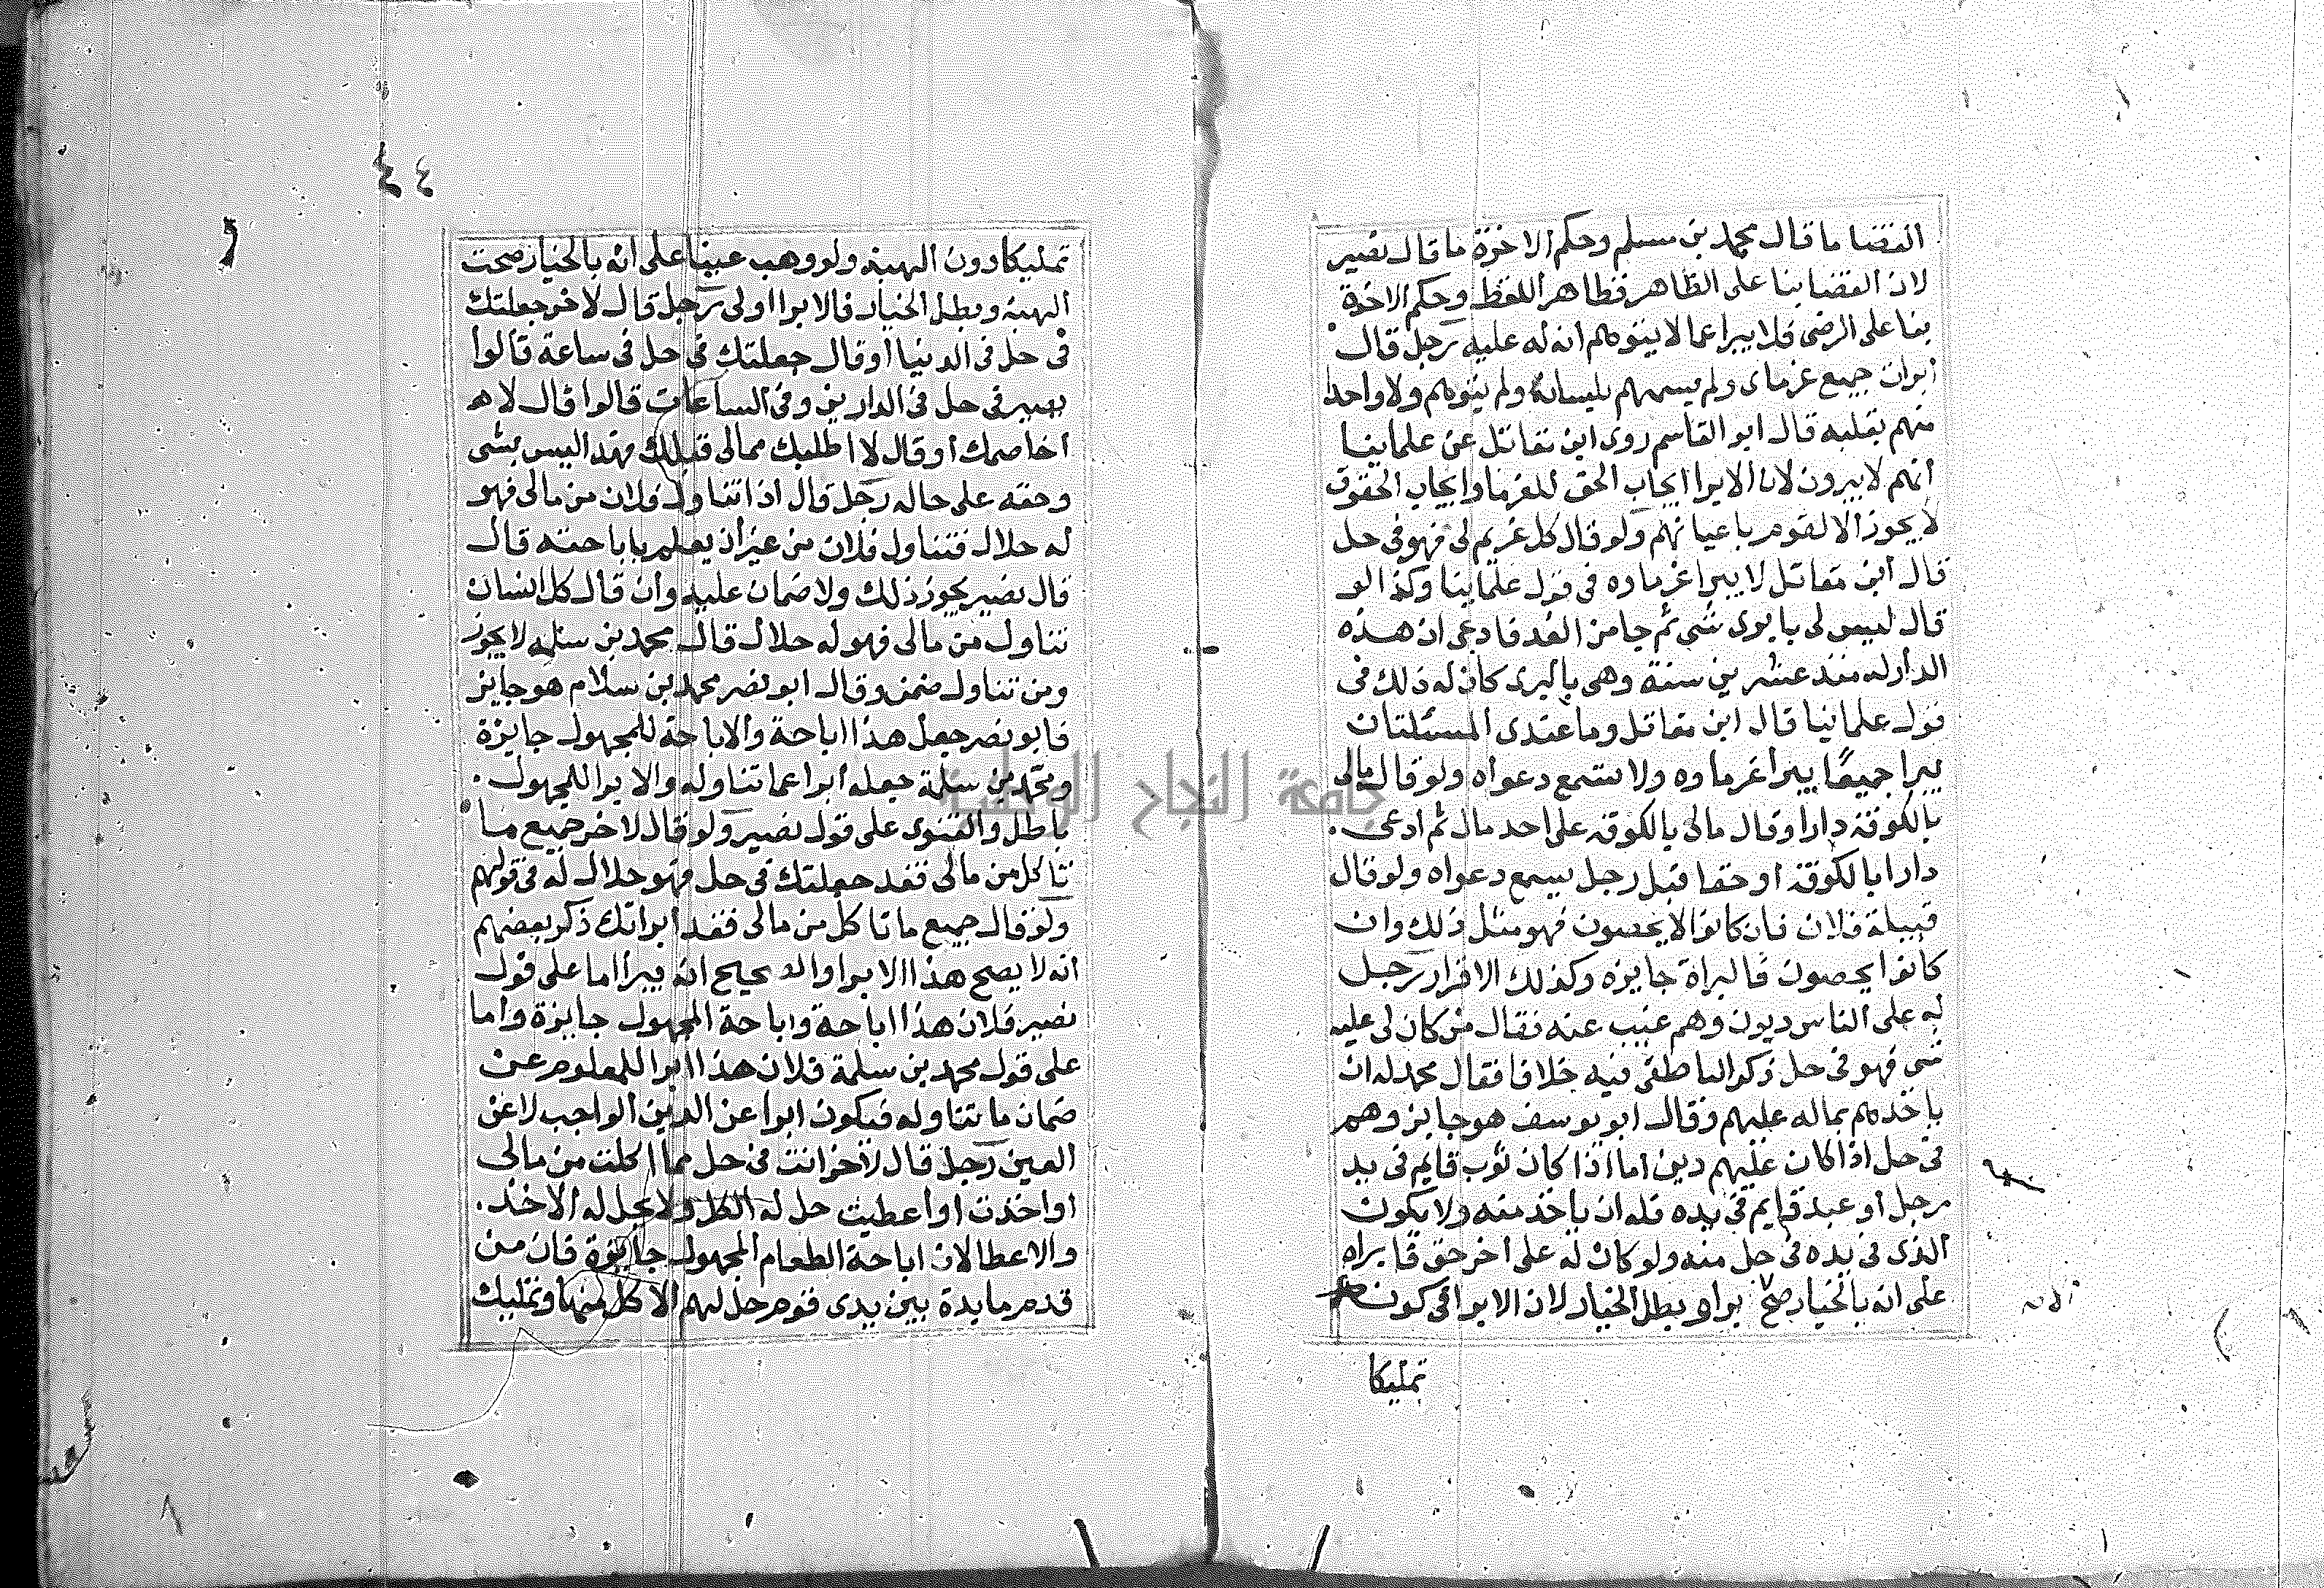 القضا ما قال محمد بن مسلم وحكم الاخرة ما قال نصير
لان القضا بنا على الظاهر فظاهر اللفظ وحكم الاخرة
بنا على الرضى فلا يبرا عما لا يتوهم انه له عليه رجل قال
ابرات جميع غرماى ولم يسمهم بلسانه ولم يتوهم ولا واحدا
منهم بقلبه قال ابو القاسم روى ابن مقاتل عن علماينا
انهم لا يبرون لان الابرا ايجاب الحق للغرما وايجاب الحقوق
لا يجوز الا لقوم باعيانهم ولو قال كل غريم لى فهو فى حل
قال ابن مقاتل لا يبرا غرماوه فى قول علماينا وكذا لو
قال ليس لى بابرى شى ثم جا من الغد فادعى ان هذه
الدار له منذ عشرين سنة وهى بالرى كان له ذلك فى
قول علماينا قال ابن مقاتل وما عندى المسئلتان
يبرا جميعًا يبرا غرماوه ولا تسمع دعواه ولو قال مالى
بالكوفة دار او قال مالى بالكوفة على احد مال ثم ادعى
دارا بالكوفة او حقا قبل رجل يسمع دعواه ولو قال
قبيلة فلان فان كانوا لا يحصون فهو مثل ذلك وان
كانوا يحصون فالبراة جايزه وكذلك الاقرار رجل
له على الناس ديون وهم غيب عنه فقال من كان لى عليه
شى فهو فى حل ذكر الناطفى فيه خلافا فقال محمد له ان
ياخذهم بماله عليهم وقال ابو يوسف هو جايز وهم
فى حل اذا كان عليهم دين اما اذا كان ثوب قايم فى يد
رجل او عبد قايم فى يده فله ان ياخذ منه ولا يكون
الذى فى يده فى حل منه ولو كان له على اخر حق فابراه
على انه بالخيار صح براو وبطل الخيار لان الابرا فى كون
تمليكا
٤٤
تمليكا دون الهبة ولو وهب عينا على انه بالخيار صحت
الهبة وبطل الخيار فالابرا اولى رجل قال لاخر جعلتك
فى حل فى الدنيا او قال جعلتك فى حل فى ساعة قالوا
يصير فى حل فى الدارين وفى الساعات قالوا قال لا
اخاصمك او قال لا اطلبك مما لى قبلك فهذا ليس بشى
وحقه على حاله رجل قال اذا تناول فلان من مالى فهو
له حلال فتناول فلان من غير ان يعلم باباحته قال
قال نصير يجوز ذلك ولا ضمان عليه وان قال كل انسان
تناول من مالى فهو له حلال قال محمد بن سلمه لا يجوز
ومن تناول ضمن وقال ابو نصر محمد بن سلام هو جايز
فابو نصر جعل هذا اباحة والاباحة للمجهول جايزة
ومحمد بن سلمة جعله ابرا عما تناوله والابرا للمجهول
باطل والفتوى على قول نصير ولو قال لاخر جميع ما
تاكل من مالى فقد جعلتك فى حل فهو حلال له فى قولهم
ولو قال جميع ما تاكل من مالى فقد ابراتك ذكر بعضهم
انه لا يصح هذا الابرا والصحيح انه يبرا اما على قول
نصير فلان هذا اباحة واباحة المجهول جايزة واما
على قول محمد بن سلمة فلان هذا ابرا للمعلوم عن
ضمان ما تناوله فيكون ابرا عن الدين الواجب لا عن
العين رجل قال لاخر انت فى حل مما اكلت من مالى
او اخذت او اعطيت حل له الاكل ولا يحل له الاخذ
والاعطا لان اباحة الطعام المجهول جايزة فان من
قدم مايدة بين يدى قوم حل لهم الاكل منها وتمليك
جامعة النجاح الوطنية